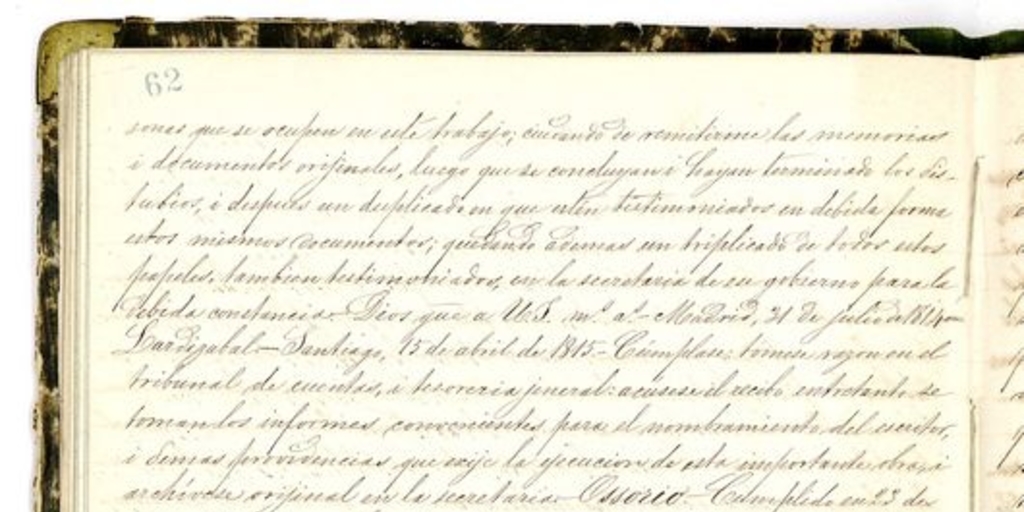 62
sonas que se ocupen en este trabajo; cuidando de remitirme las memorias
i documentos orijinales, luego que se concluyan i hayan terminado los dis-
tubios, i despues un duplicado en que estén testimoniados en debida forma
estos mismos documentos; quedando ademas un triplicado de todos estos
papeles, tambien testimoniados, en la secretaria de su gobierno para la
debida constancia.- Dios gue a U.S. m.s a.s- Madrid, 31 de julio de 1814-
Lardizabal.- Santiago, 15 de abril de 1815.- Cúmplase: tomese razon en el
tribunal de cuentas, i tesoreria jeneral: acúsese el recibo entretanto se
toman los informes convenientes para el nombramiento del escritor,
i demas providencias que exije la ejecucion de esta importante obra, i
archívese orijinal en la secretaria- Ossorio- Cumplido en 23 de